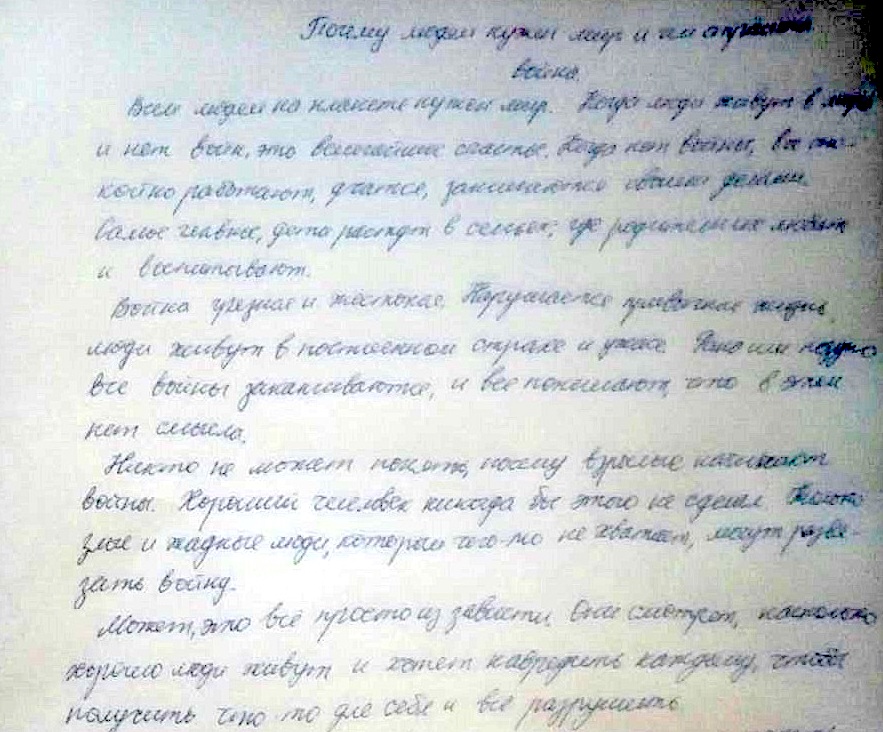 Почему людям нужен мир и чем страшна
война.
Всем людям на планете нужен мир. Когда люди живут в мире
и нет войн, это величайшее счастье. Когда нет войны, все спо-
койно работают, учатся, занимаются своими делами.
Самое главное, дети растут в семьях, где родители их любят
и воспитывают.
Война грязная и жестокая. Нарушается привычная жизнь,
люди живут в постоянном страхе и ужасе. Рано или поздно
все войны заканчиваются, и все понимают, что в этом
нет смысла.
Никто не может понять, почему взрослые начинают
войны. Хороший человек никогда бы этого не сделал. Только
злые и жадные люди, которым чего-то не хватает, могут развя-
зать войну.
Может, это всё просто из зависти. Они смотрят, насколько
хорошо люди живут и хотят навредить каждому, чтобы
получить что-то для себя и всё разрушить